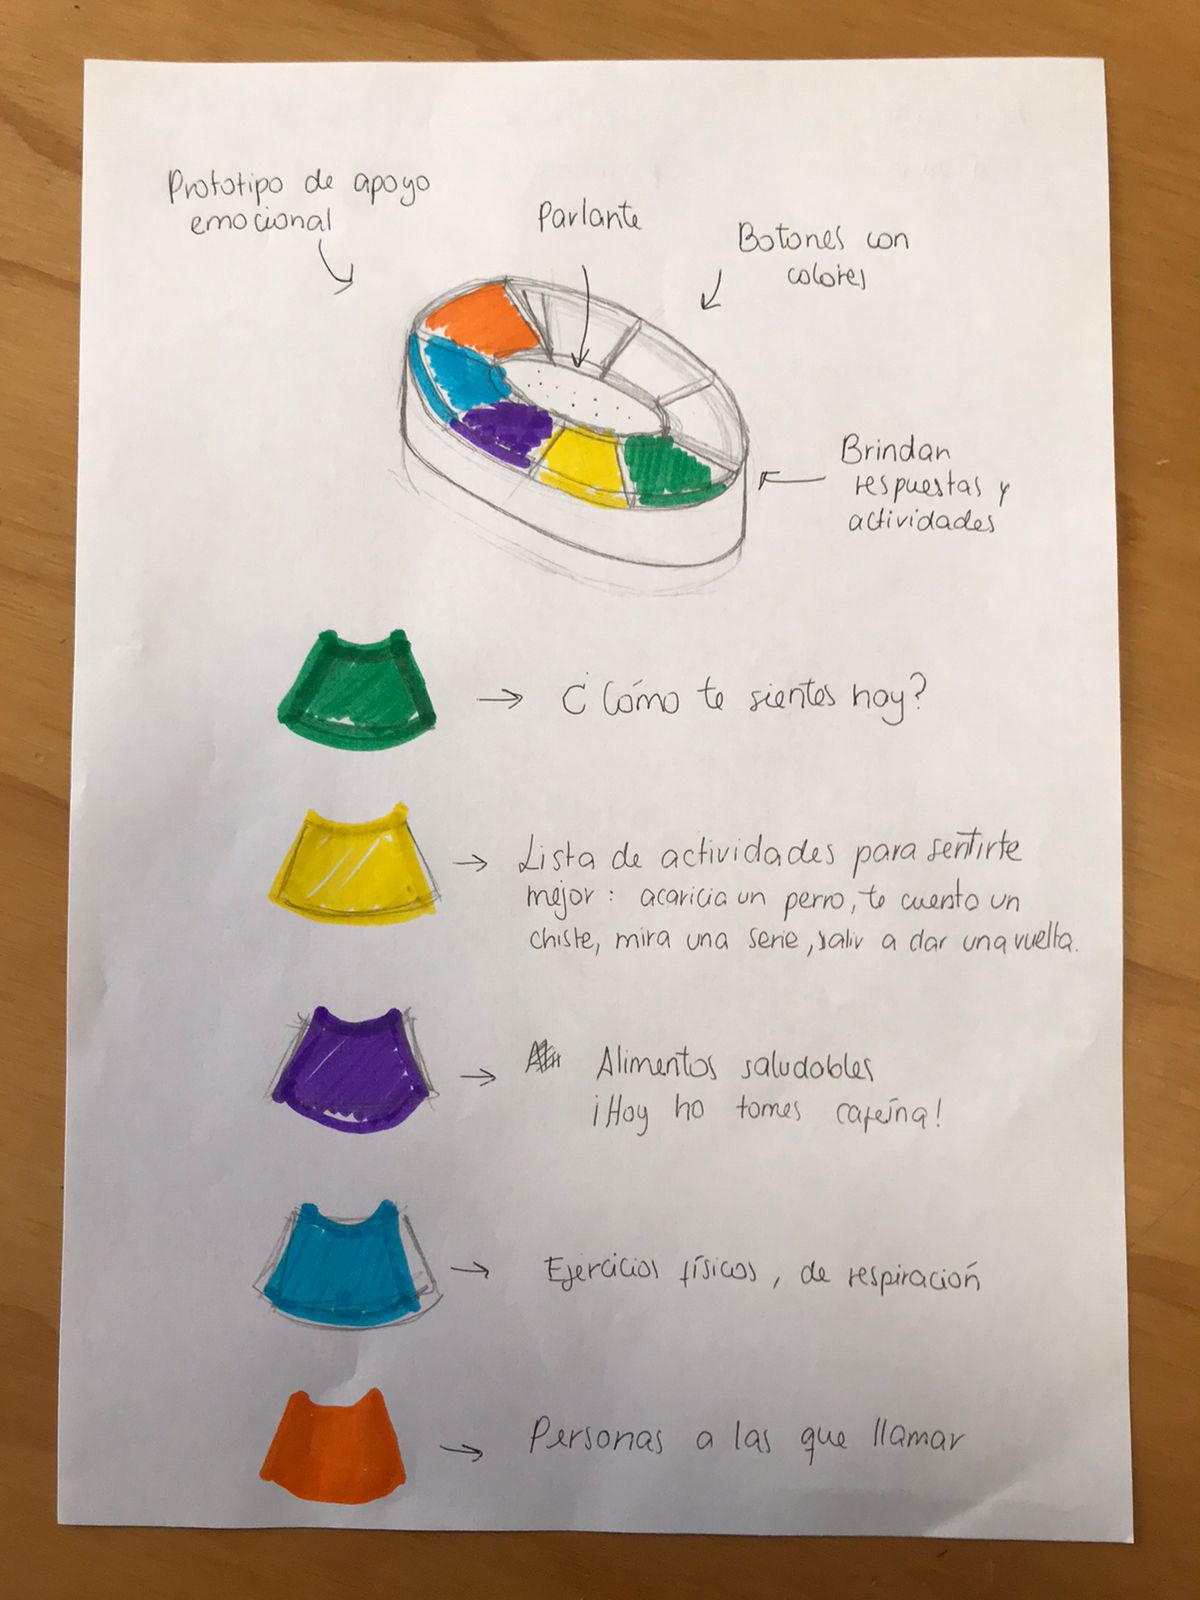 Prototipo de apoyo
emocional
Parlante
Botones con
colores
Brindan
respuestas y
actividades
¿Cómo te sientes hoy?
Lista de actividades para sentirte
mejor: acaricia un perro, te cuento un
chiste, mira una serie, salir a dar una vuelta.
Alimentos saludables
¡Hoy no tomes cafeína!
Ejercicios físicos, de respiración
Personas a las que llamar